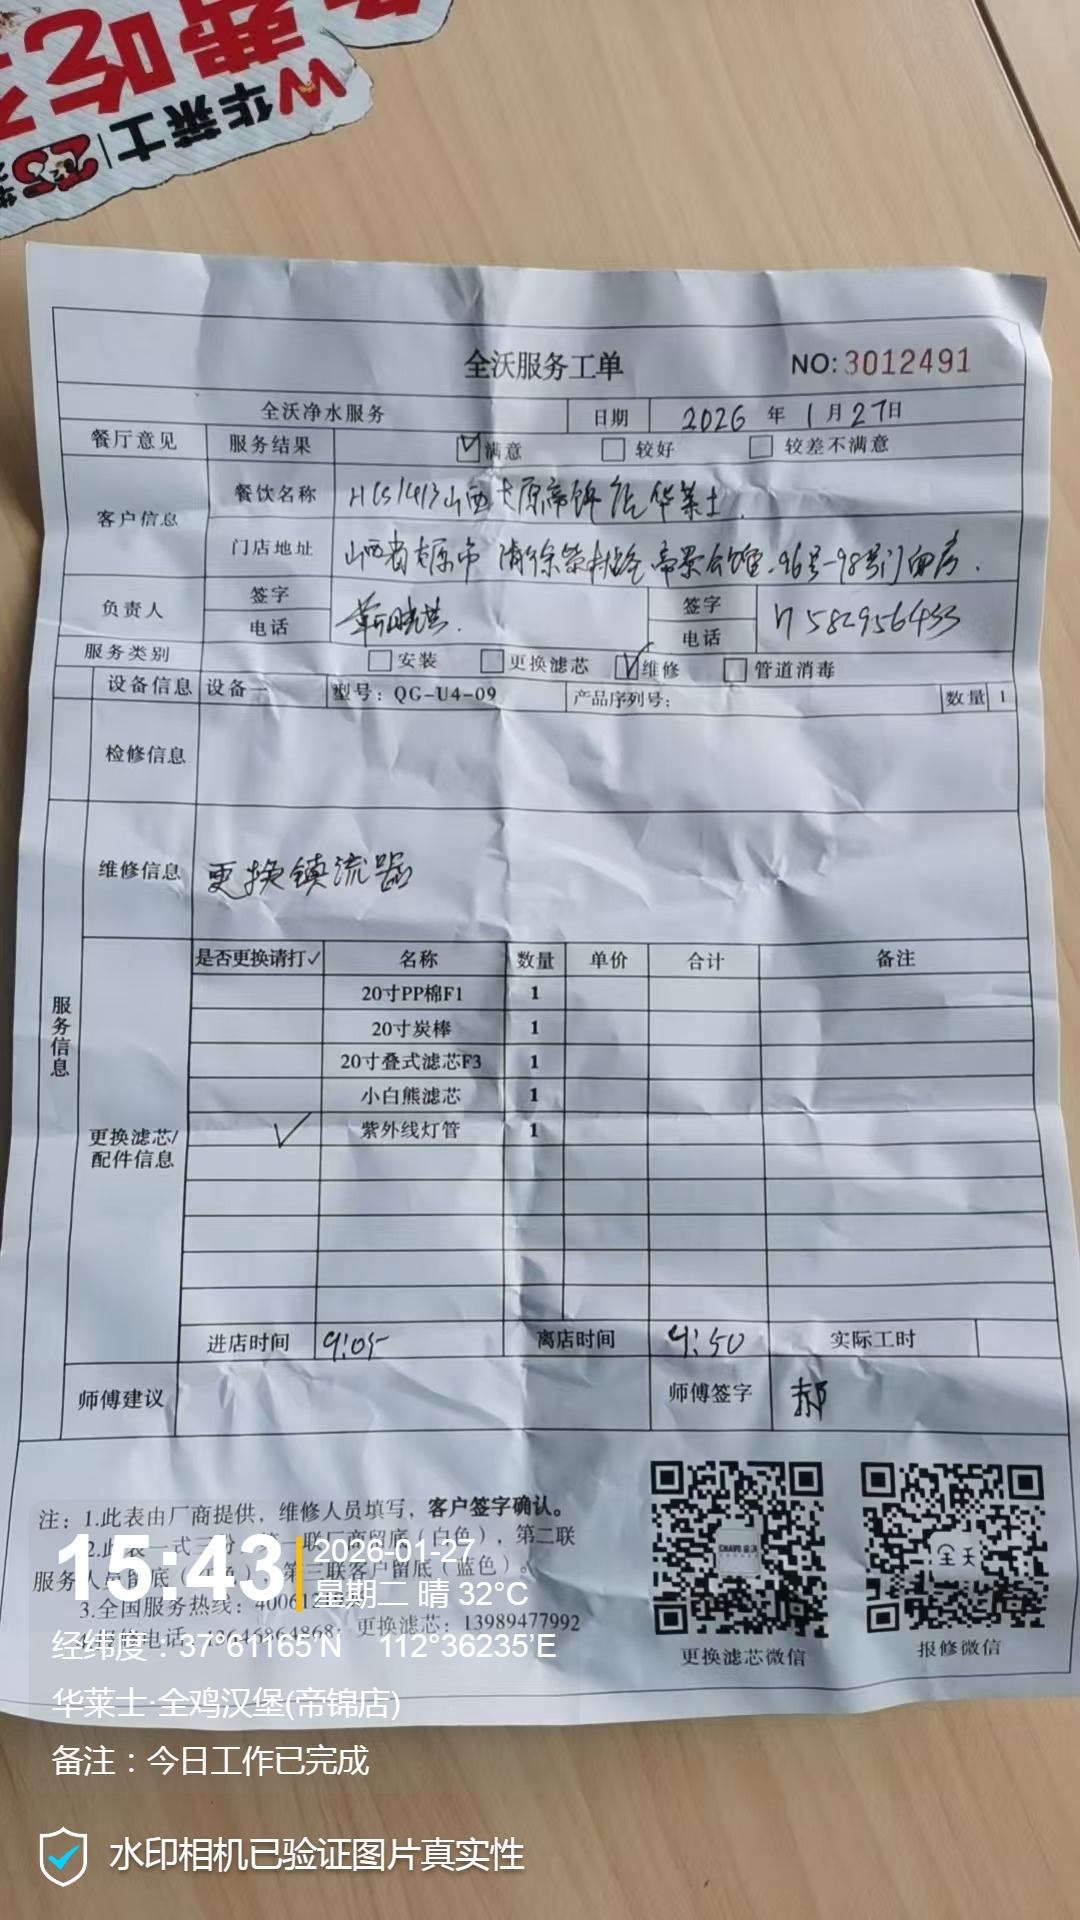 费吃
W华莱士 25
全沃服务工单 NO:3012491
全沃净水服务 日期 2026 年 1 月 27日
餐厅意见 服务结果 满意 较好 较差不满意
客户信息 餐饮名称 山西太原帝锦店华莱士
门店地址 山西省太原市 清徐 路 帝景会馆 96号-98号门面房.
负责人 签字 签字
电话 电话 17582956433
服务类别 安装 更换滤芯 维修 管道消毒
设备信息 设备一 型号：QG-U4-09 产品序列号： 数量 1
检修信息
维修信息 更换镇流器
服务信息
更换滤芯/
配件信息
是否更换请打✓ 名称 数量 单价 合计 备注
20寸PP棉F1 1
20寸炭棒 1
20寸叠式滤芯F3 1
小白熊滤芯 1
✓ 紫外线灯管 1
进店时间 9:05 离店时间 9:50 实际工时
师傅建议 师傅签字 郝
注：1.此表由厂商提供，维修人员填写，客户签字确认。
联厂商留底（白色），第二联
服务人员留底 第三联客户留底（蓝色）。
3.全国服务热线：
更换滤芯：13989477992
更换滤芯微信 报修微信
全天
15:43
2026-01-27
星期二 晴 32°C
经纬度：37°61165'N 112°36235'E
华莱士·全鸡汉堡(帝锦店)
备注：今日工作已完成
水印相机已验证图片真实性